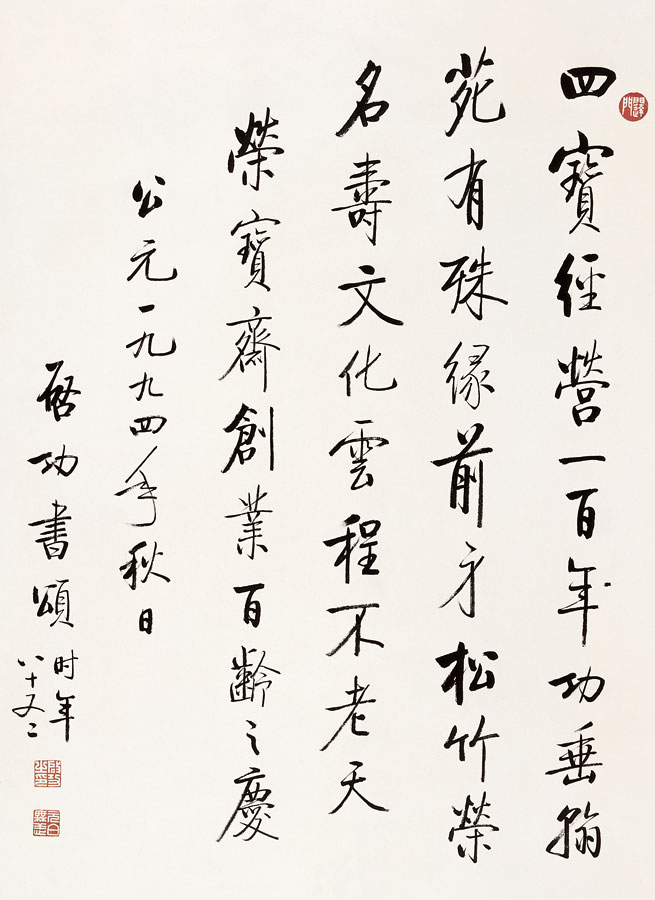 四寶經營一百年功垂翰
苑有殊緣前身松竹榮
名壽文化雲程不老天
榮寶齋創業百齡之慶
公元一九九四年秋日
啓功書頌时年
八十又二